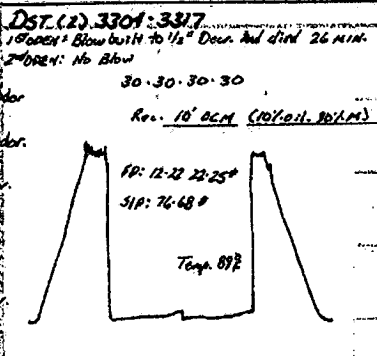 DST (2) 3304-3317
1st OPEN: Blow built to 1/2" Decr. And died 26 MIN.
2nd OPEN: No Blow
30-30-30-30
dor
Rec. 10' OCM (10% oil, 90% M)
dor.
FP: 12-22 22-25#
SIP: 76-68#
Temp. 89°F